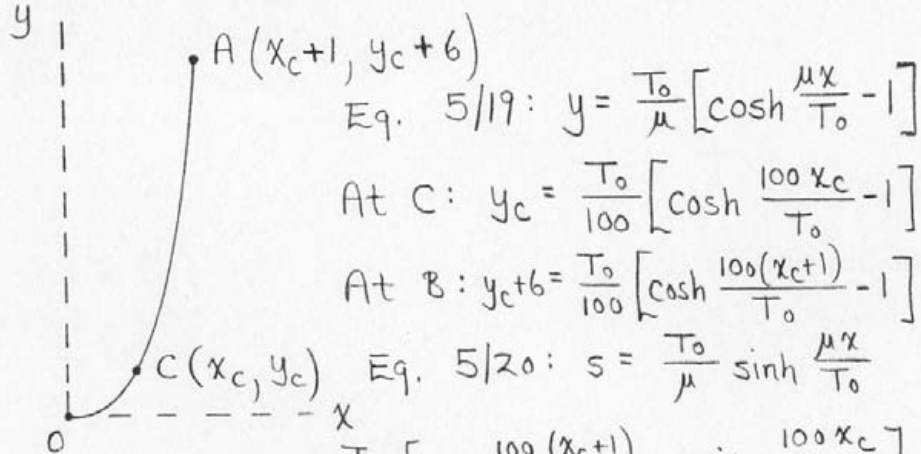 y
A (x_c+1, y_c+6)
Eq. 5/19: y = T_0/μ [cosh μx/T_0 -1]
At C: y_c = T_0/100 [cosh 100 x_c/T_0 -1]
At B: y_c+6 = T_0/100 [cosh 100(x_c+1)/T_0 -1]
C (x_c, y_c) Eq. 5/20: s = T_0/μ sinh μx/T_0
x
0
100 (x_c+1) 100 x_c ]